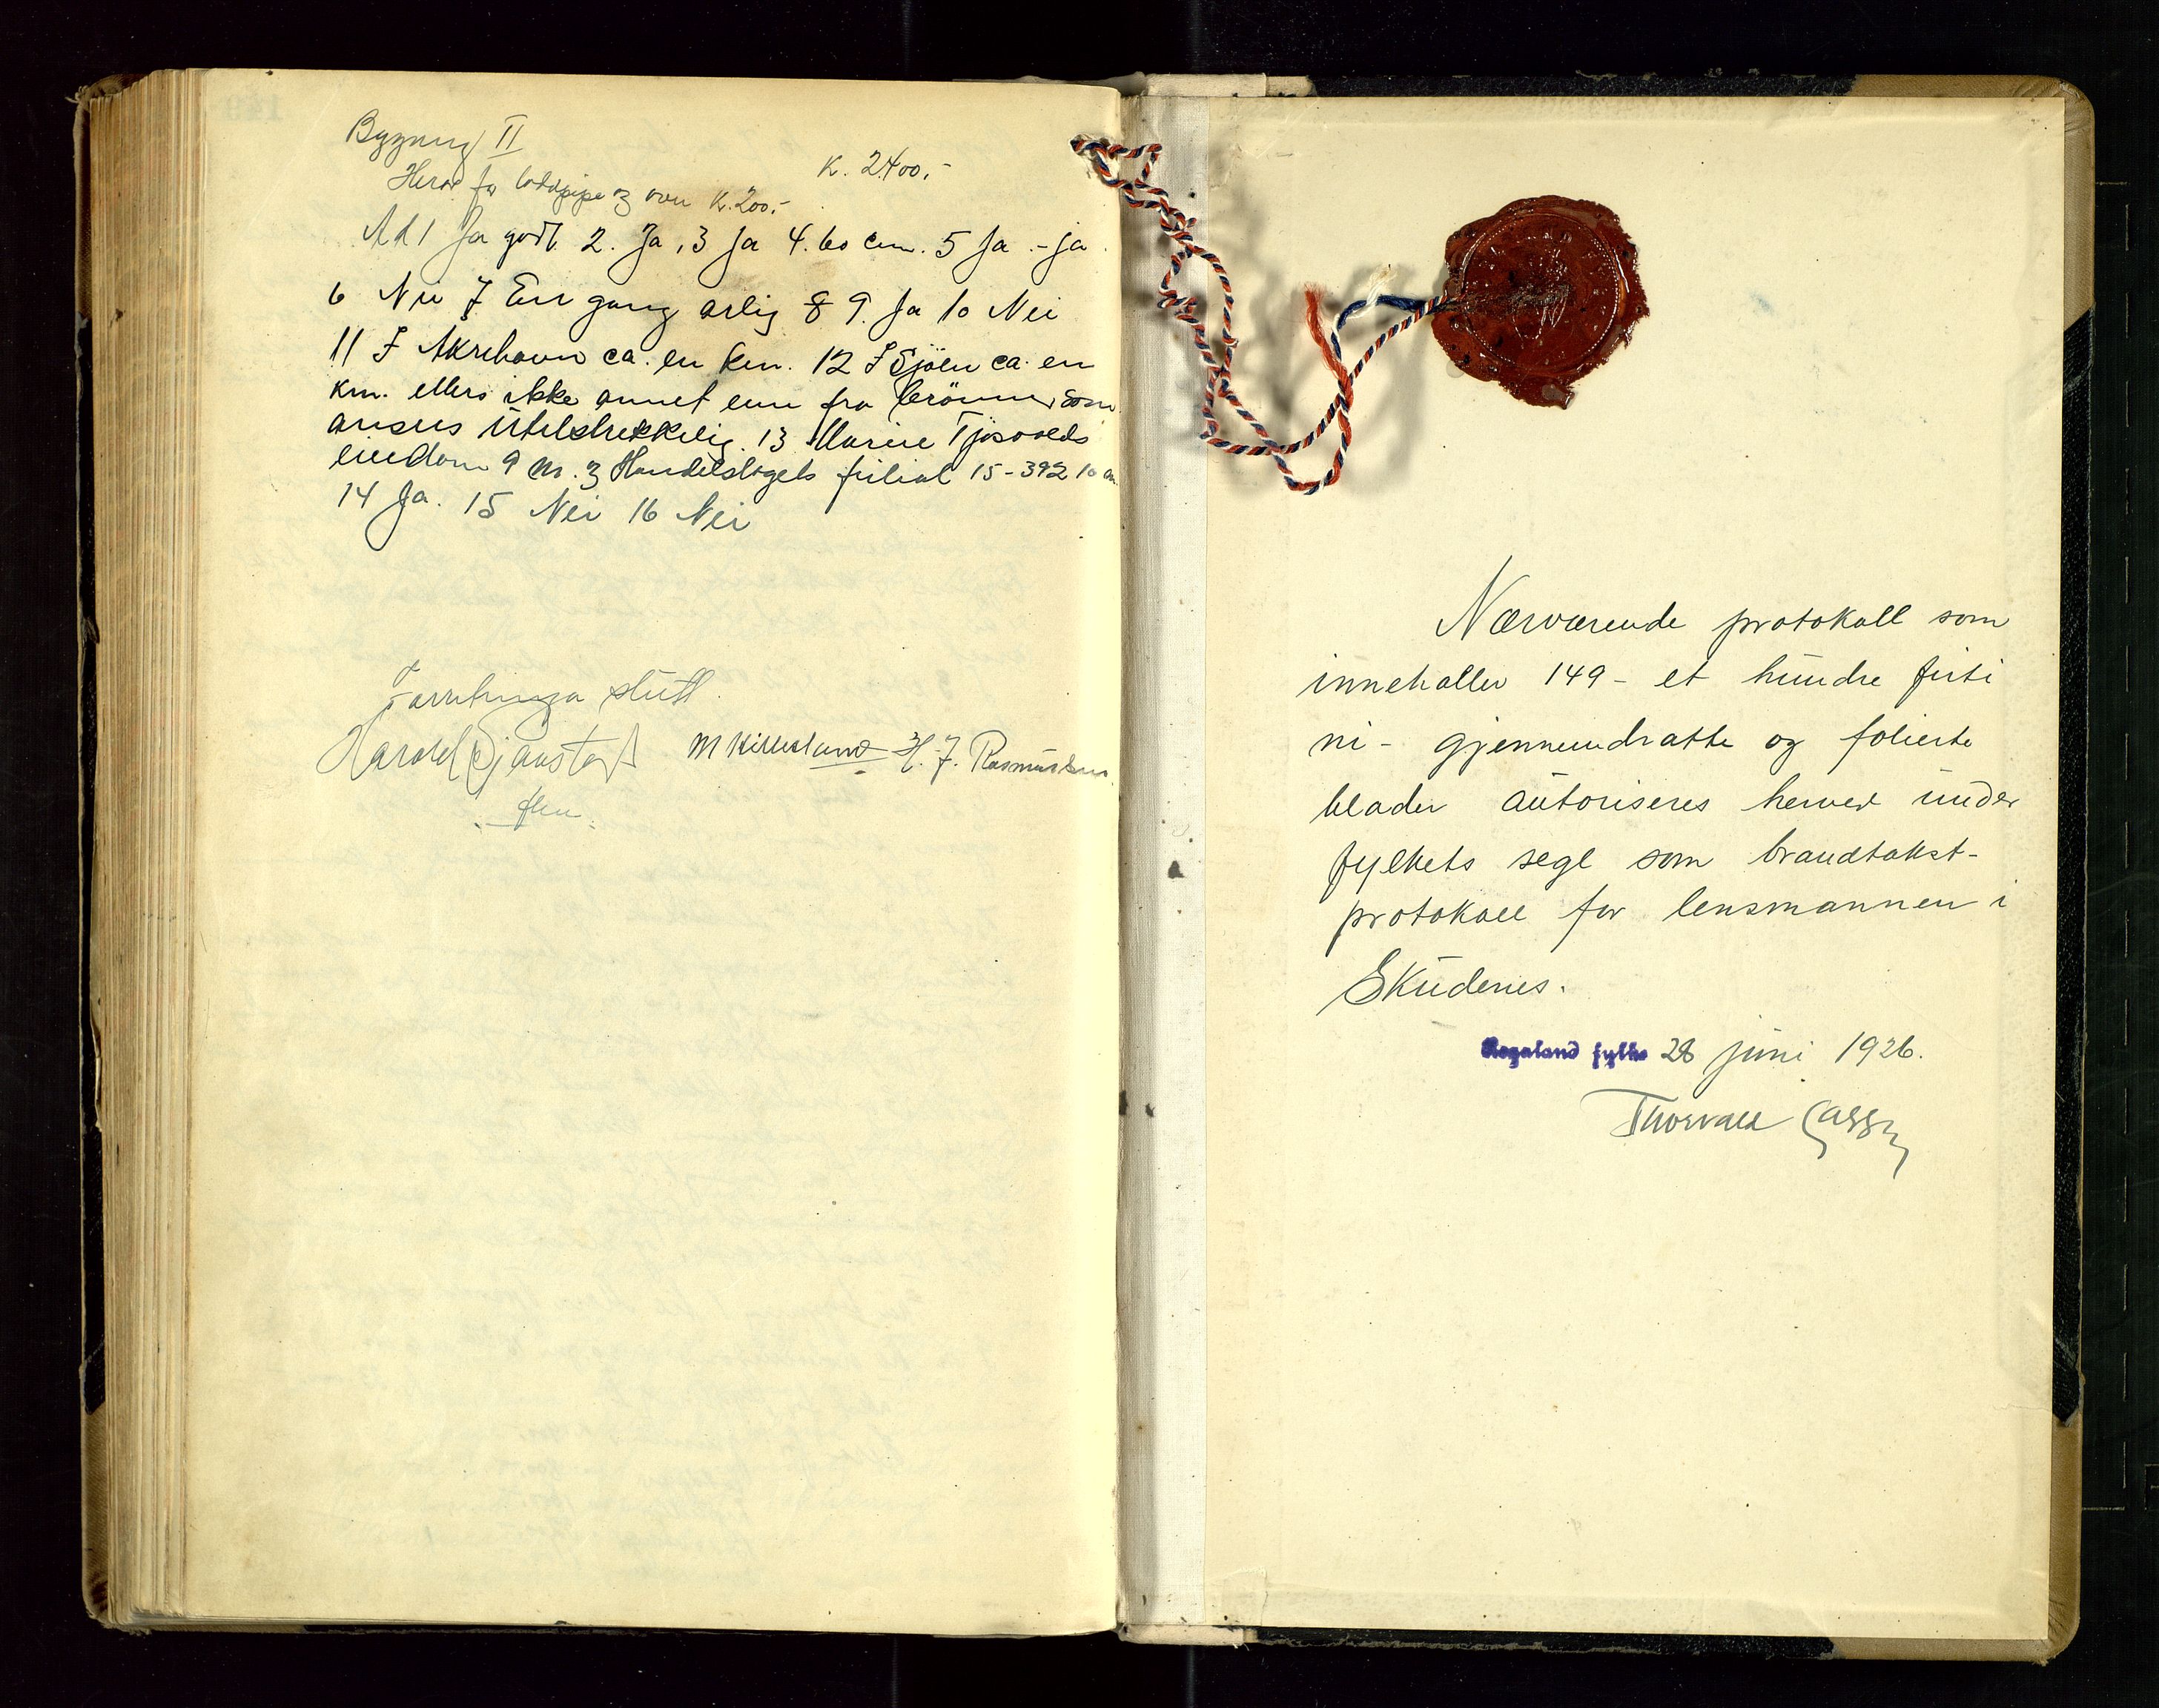 Bygning II
K. 2400,-
Herav for loddpipe og ovn K. 200,-
Ad 1 Ja godt. 2. Ja, 3 Ja 4. 60 cm. 5 Ja .- ja
6 Nei 7 En gang årlig 8 9. Ja 10 Nei
11 I Åkrehavn ca. en km. 12 I Sjöen ca. en
km. ellers ikke annet enn fra brönner som
ansees utilstrekkelig. 13 Marie Tjösvolds
eiendom 9 m. og Handelslagets filial 15-392 10 m.
14 Ja. 15 Nei 16 Nei
Forretninga slutt.
Harald M Killesland H. J. Rasmussen
Nærværende protokoll som
inneholler 149 - et hundre firti
ni - gjennemdratte og folierte
blader autoriseres herved under
fylkets segl som brandtakst-
protokoll for lensmannen i
Skudenes.
Rogaland fylke 28 juni 1926.
Thorvald